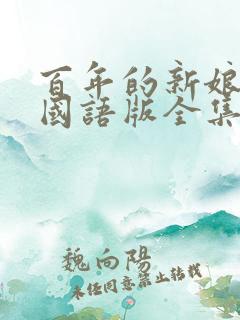 百年的新娘
國語版全集
魏向陽
未经同意禁止转载